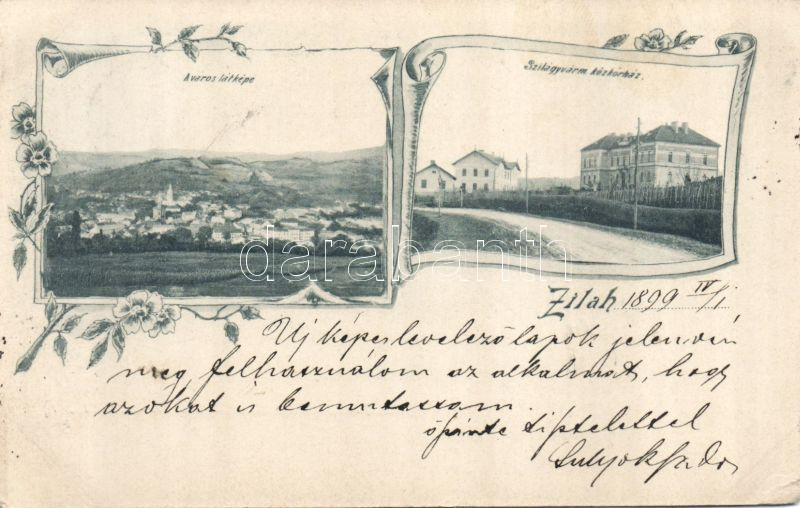 A város látképe
Szilágyvárm. közkórház.
Zilah 1899 IV/1
Új képes levelező lapok jelenvén
meg felhasználom az alkalmat, hogy
azokat is bemutassam.
őszinte tisztelettel
darabanth